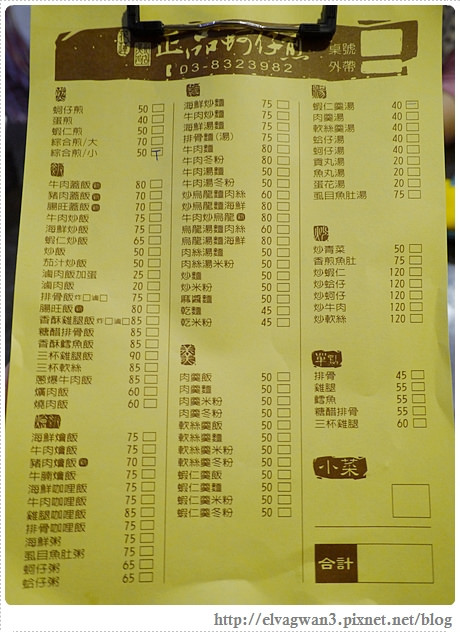 正品蚵仔煎
03-8323982
桌號
外帶
煎
蚵仔煎 50
蛋煎 40
蝦仁煎 50
綜合煎/大 70
綜合煎/小 50
飯
牛肉蓋飯 80
豬肉蓋飯 70
腸旺蓋飯 70
牛肉炒飯 75
海鮮炒飯 75
蝦仁炒飯 65
炒飯 50
茄汁炒飯 50
滷肉飯加蛋 25
滷肉飯 20
排骨飯炸□滷□ 75
腸旺飯 80
香酥雞腿飯炸□滷□ 85
糖醋排骨飯 85
香酥鱈魚飯 85
三杯雞腿飯 90
三杯軟絲飯 85
蔥爆牛肉飯 85
爌肉飯 60
燒肉飯 60
燴
海鮮燴飯 75
牛肉燴飯 75
豬肉燴飯 70
牛腩燴飯 75
海鮮咖哩飯 75
牛肉咖哩飯 75
雞腿咖哩飯 85
排骨咖哩飯 75
海鮮粥 75
虱目魚肚粥 75
蚵仔粥 65
蛤仔粥 65
海鮮炒麵 75
牛肉炒麵 75
海鮮湯麵 75
排骨麵(湯) 75
牛肉麵 80
牛肉冬粉 80
牛肉湯麵 50
牛肉湯冬粉 50
炒烏龍麵肉絲 60
炒烏龍麵海鮮 80
牛肉炒烏龍 80
烏龍湯麵肉絲 60
烏龍湯麵海鮮 80
肉絲湯麵 50
肉絲湯米粉 50
炒麵 50
炒米粉 50
麻醬麵 50
乾麵 45
乾米粉 45
羹
肉羹飯 50
肉羹麵 50
肉羹米粉 50
肉羹冬粉 50
軟絲羹飯 50
軟絲羹麵 50
軟絲羹米粉 50
軟絲羹冬粉 50
蝦仁羹飯 50
蝦仁羹麵 50
蝦仁羹米粉 50
蝦仁羹冬粉 50
湯
蝦仁羹湯 40
肉羹湯 40
軟絲羹湯 40
蛤仔湯 40
蚵仔湯 40
貢丸湯 20
魚丸湯 20
蛋花湯 20
虱目魚肚湯 75
炒
炒青菜 50
香煎魚肚 75
炒蝦仁 120
炒蛤仔 120
炒蚵仔 120
炒牛肉 120
炒軟絲 120
單點
排骨 45
雞腿 55
鱈魚 55
糖醋排骨 55
三杯雞腿 60
小菜
合計
http://elvagwan3.pixnet.net/blog